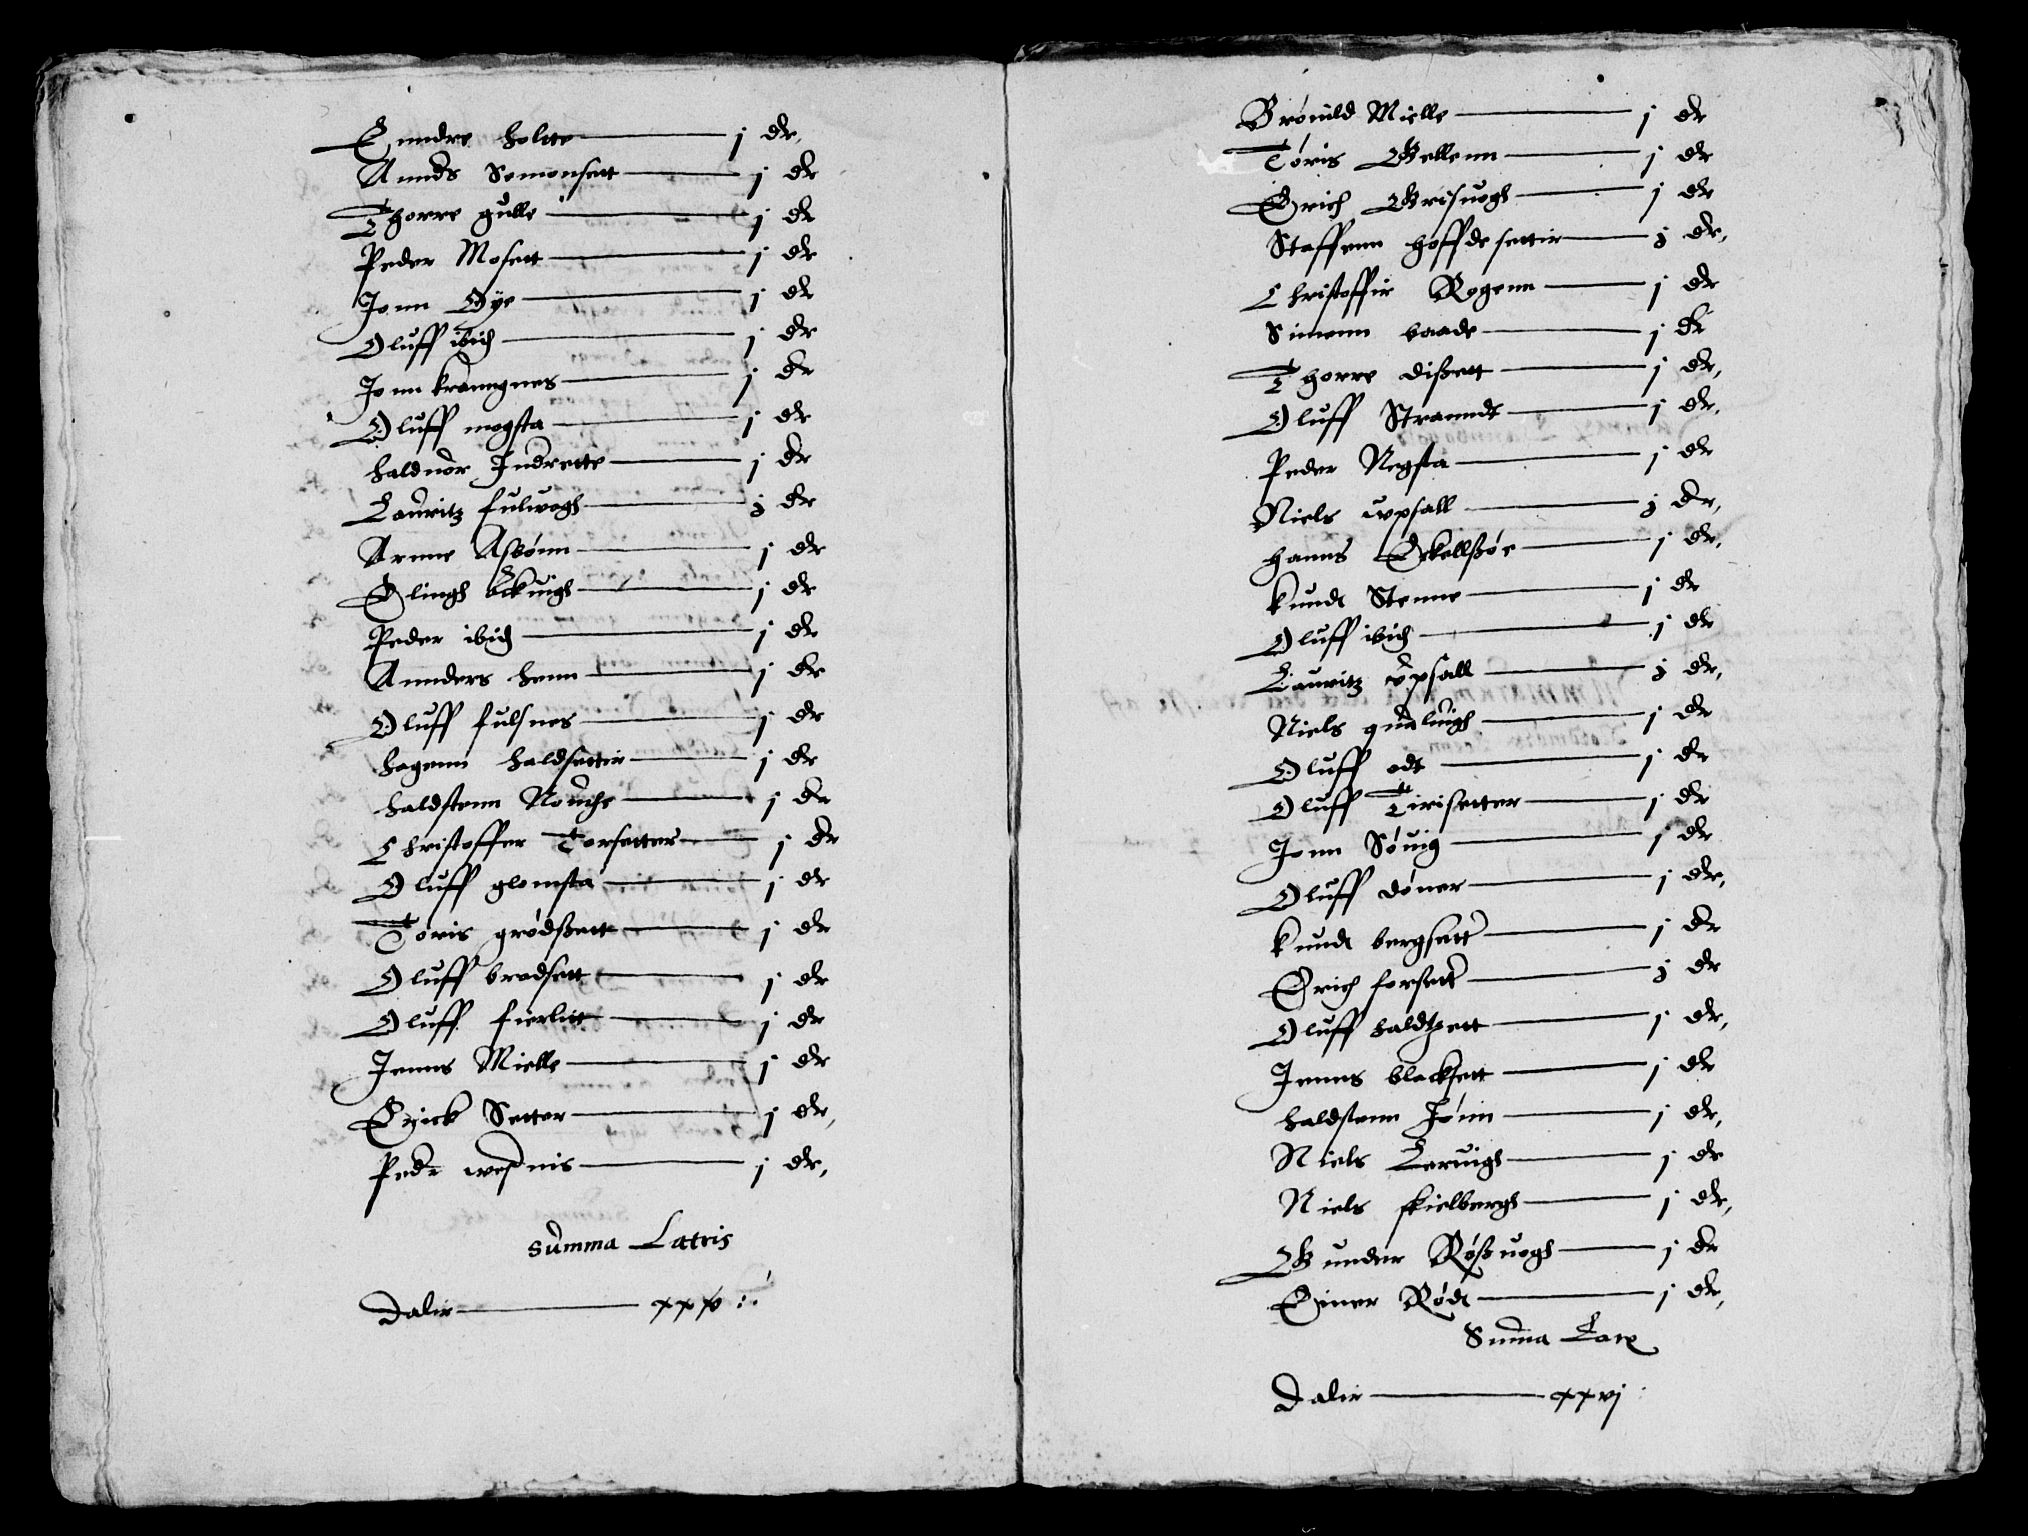 Gundre holtte j dr,
Annds Somonsett j dr
Thorre gulle j dr
Peder Mosett j dr
Jonn Øye j dr
Oluff ibid j dr
Jonn kramgnes j dr
Oluff mogsta j dr
haldnor Indrette j dr
Lauritz fulwogh j dr
Arnne Asbønn j dr
Elingh Eckuigh j dr
Peder ibid j dr
Annders henn j dr
Oluff fulsnes j dr
hagenn haldsettir j dr
haldstenn Nouche j dr
Christoffer Torsetter j dr
Oluff glomsta j dr
Toris grødßett j dr
Oluff bradsett j dr
Oluff fierlitt j dr
Jenns Mielle j dr
Erick Setter j dr,
Pedr wesnis j dr,
Summa Lateris
Dalir
Brønild Mielle j dr
Toris Gellenn j dr
Erich Grisuogh j dr
Staffenn hoffdesettir j dr,
Christoffir Rogenn j dr
Simonn baade j dr
Thorre dißett j dr,
Oluff Stranndt j dr,
Peder Negsta j dr
Niels wpsall j dr,
hanns Eckellßøe j dr,
knudt Stenne j dr
Oluff ibid j dr
Lauritz wpsall j dr,
Niels j dr
Oluff odt j dr
Oluff Tirisetter j dr
Jonn Søuig j dr
Oluff døner j dr,
knudt bergsett j dr
Erich forsett j dr
Oluff haldtzett j dr,
Jenns blacksett j dr
haldstenn Jønn j dr,
Niels Leruigh j dr
Niels skielbergh j dr,
Gunder Røßuogh j dr
Einer Rødt j dr,
Summa Late
Dalir xxvj